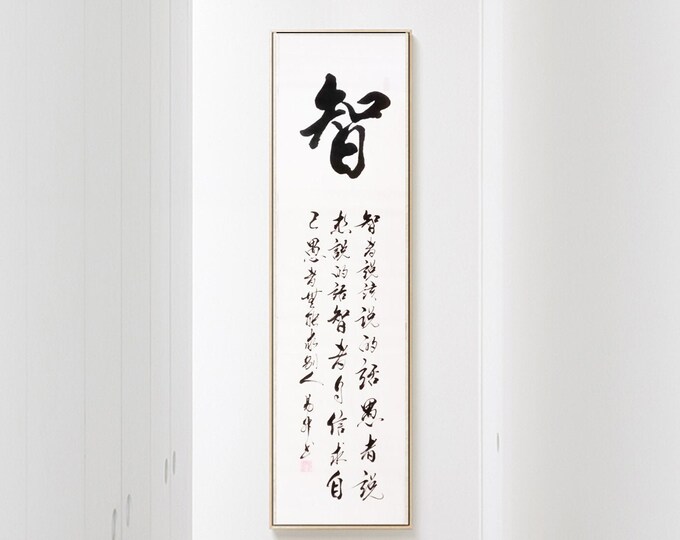 智
智者說該說的話愚者說
想說的話智者自信求自
己愚者無能求別人